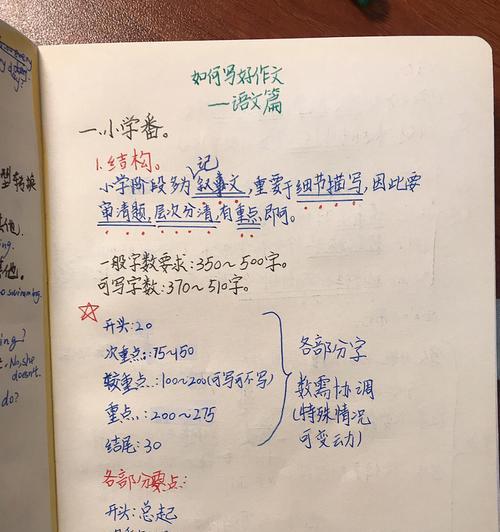 型转换
其他.
其他。
swimming.
ing?
. No, she
doesn't.
do?
如何写好作文
—语文篇
一.小学番。
1.结构。
记
小学阶段多为叙事文,重要于细节描写,因此要
审清题,层次分清,有重点即可。
一般字数要求:350~500字。
可写字数:370~510字。
☆
开头:20
次重点:75~150
较重点:100~200(可写可不写)
重点:200~275
结尾:30
各部分字
数需协调
(特殊情况
可变动)
各部分要点:
开头:总起